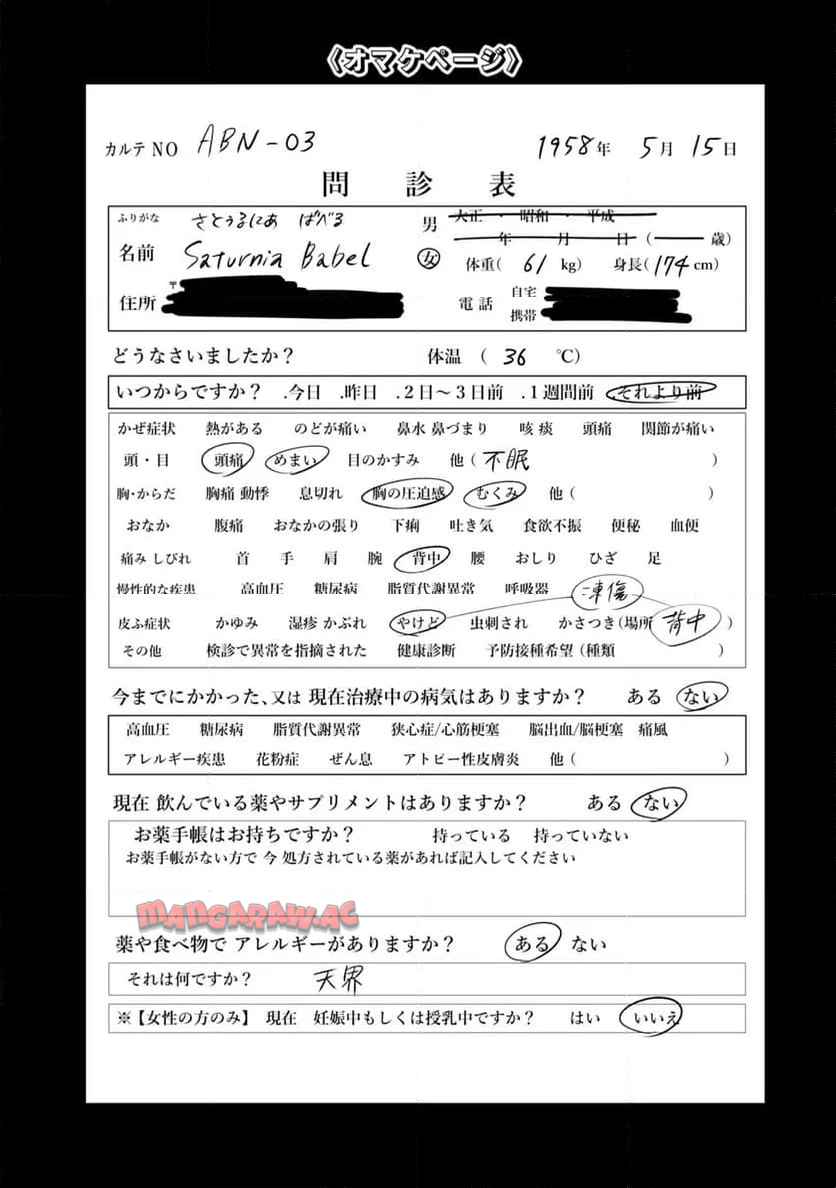 《オマケページ》
カルテ NO ABN-03 1958年 5月 15日
問診表
ふりがな さとぅるにあ ばべる 男 大正・昭和・平成
年 月 日 ( 歳)
名前 Saturnia Babel 女 体重( 61 kg) 身長( 174 cm)
〒
住所 電話 自宅
携帯
どうなさいましたか? 体温 ( 36 ℃)
いつからですか? .今日 .昨日 .2日〜3日前 .1週間前 .それより前
かぜ症状 熱がある のどが痛い 鼻水 鼻づまり 咳 痰 頭痛 関節が痛い
頭・目 頭痛 めまい 目のかすみ 他 ( 不眠 )
胸・からだ 胸痛 動悸 息切れ 胸の圧迫感 むくみ 他 ( )
おなか 腹痛 おなかの張り 下痢 吐き気 食欲不振 便秘 血便
痛み しびれ 首 手 肩 腕 背中 腰 おしり ひざ 足
慢性的な疾患 高血圧 糖尿病 脂質代謝異常 呼吸器 凍傷
皮ふ症状 かゆみ 湿疹 かぶれ やけど 虫刺され かさつき(場所 背中 )
その他 検診で異常を指摘された 健康診断 予防接種希望 (種類 )
今までにかかった、又は 現在治療中の病気はありますか? ある ない
高血圧 糖尿病 脂質代謝異常 狭心症/心筋梗塞 脳出血/脳梗塞 痛風
アレルギー疾患 花粉症 ぜん息 アトピー性皮膚炎 他 ( )
現在 飲んでいる薬やサプリメントはありますか? ある ない
お薬手帳はお持ちですか? 持っている 持っていない
お薬手帳がない方で 今 処方されている薬があれば記入してください
MANGARAW.AC
薬や食べ物で アレルギーがありますか? ある ない
それは何ですか? 天界
※【女性の方のみ】 現在 妊娠中もしくは授乳中ですか? はい いいえ